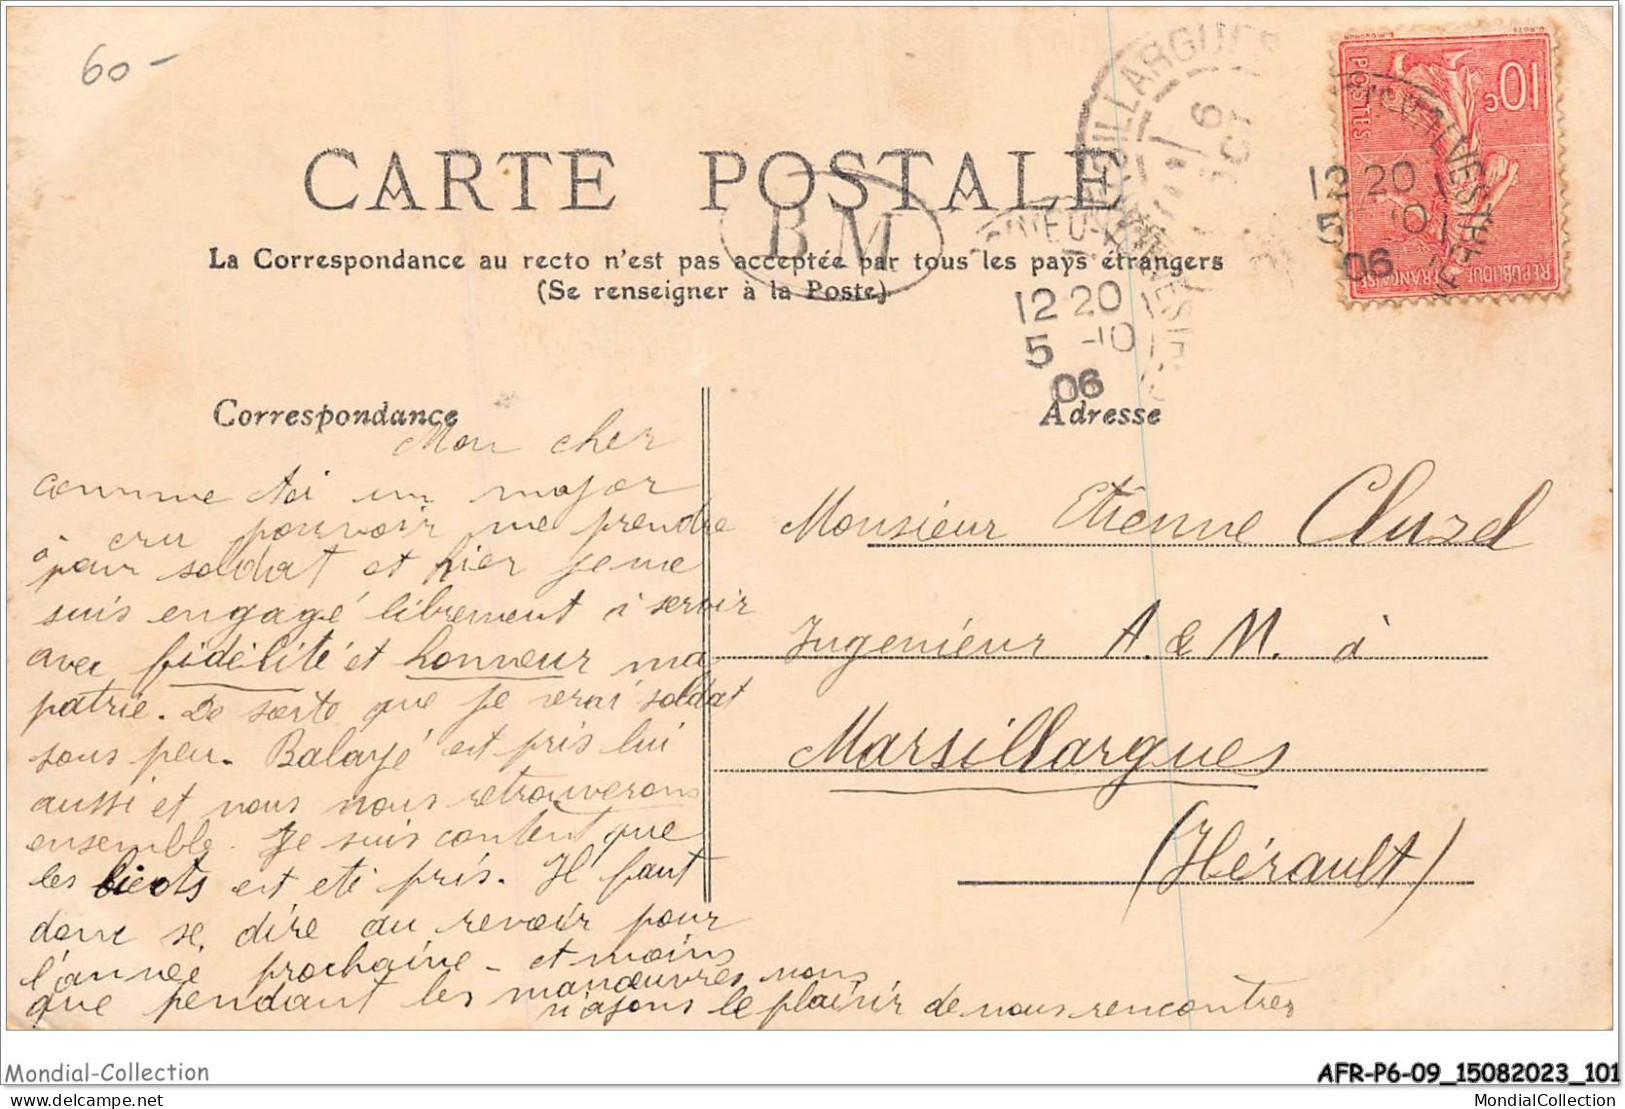 60-
CARTE POSTALE
BM
La Correspondance au recto n'est pas acceptée par tous les pays étrangers
(Se renseigner à la Poste)
MARSILLARGUES
6
OCT
12 20
5 -10
06
12 20
5 -10
06
10c
POSTES
REPUBLIQUE FRANÇAISE
Correspondance
Adresse
Mon cher
comme toi un major
a cru pouvoir me prendre
pour soldat et hier je me
suis engagé librement à servir
avec fidélité et honneur ma
patrie. De sorte que je serai soldat
sous peu. Balayé est pris lui
aussi et nous nous retrouverons
ensemble. Je suis content que
les est eté pris. Il faut
donc se dire au revoir pour
l'année prochaine - et moins
que pendant les manœuvres nous
n'ayons le plaisir de nous rencontrer
Monsieur Etienne Cluzel
Ingenieur A. & M. à
Marsillargues
(Hérault)
Mondial-Collection
AFR-P6-09_15082023_101
delcampe.net
MondialCollection